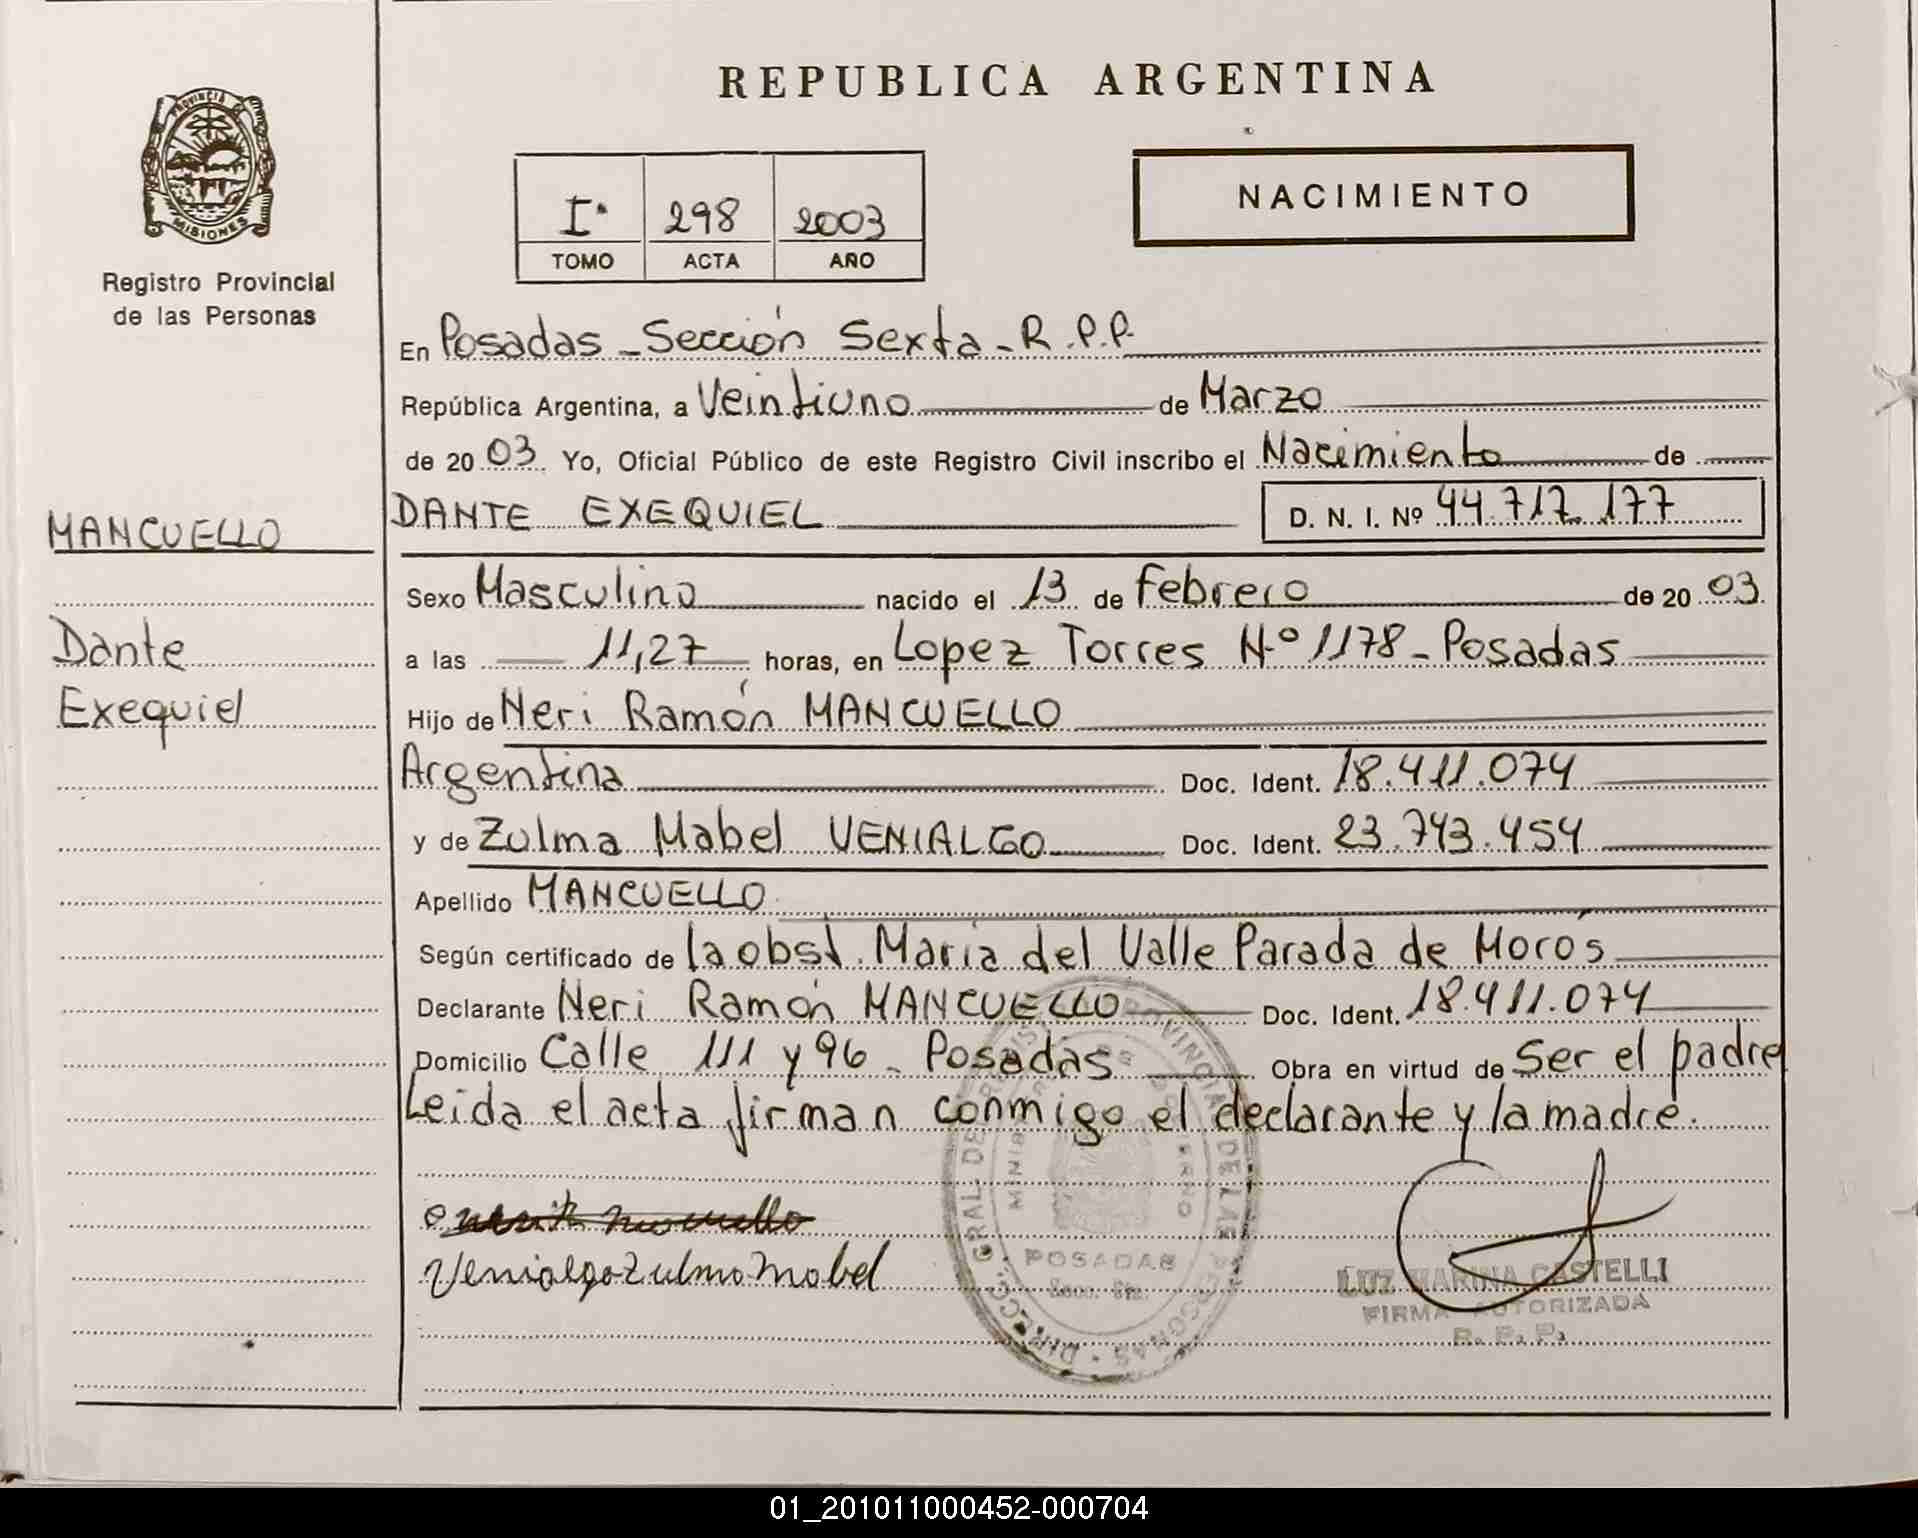 REPUBLICA ARGENTINA
PROVINCIA DE
MISIONES
Registro Provincial
de las Personas
NACIMIENTO
Iº 298 2003
TOMO ACTA AÑO
En Posadas - Sección Sexta - R.P.P.
República Argentina, a Veintiuno de Marzo
de 2003. Yo, Oficial Público de este Registro Civil inscribo el Nacimiento de
MANCUELLO
Dante
Exequiel
DANTE EXEQUIEL D. N. I. Nº 44.717.177
Sexo Masculino nacido el 13 de Febrero de 2003
a las 11,27, horas, en Lopez Torres Nº 1178 - Posadas
Hijo de Neri Ramón MANCUELLO
Argentina Doc. Ident. 18.411.074
y de Zulma Mabel VENIALGO Doc. Ident. 23.743.454
Apellido MANCUELLO
Según certificado de la obst. María del Valle Parada de Moros
Declarante Neri Ramón MANCUELLO Doc. Ident. 18.411.074
Domicilio Calle 111 y 96 - Posadas Obra en virtud de Ser el padre
Leida el acta firman conmigo el declarante y la madre.
Venialgo Zulma Mabel
DIRECC. GRAL. DE REGISTRO PROVINCIAL DE LAS PERSONAS
MINISTERIO DE GOBIERNO
POSADAS
Secc. 6ta.
LUZ MARINA CASTELLI
FIRMA AUTORIZADA
R. P. P.
01_201011000452-000704